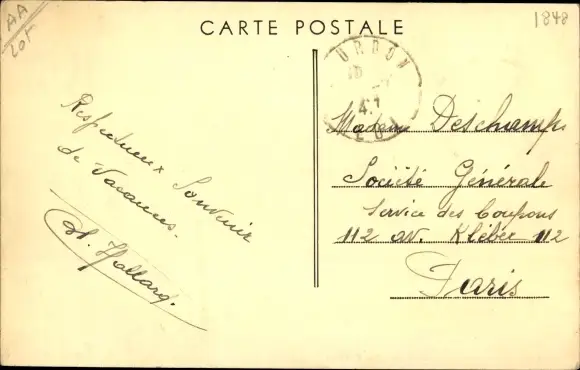 AA
Lot
CARTE POSTALE
1848
Respectueux Souvenir
de Vacances.
Hallard.
URDON
47
LOT
Madame Deschamps
Société Générale
Service des Coupons
112 av. Kléber 112
Paris